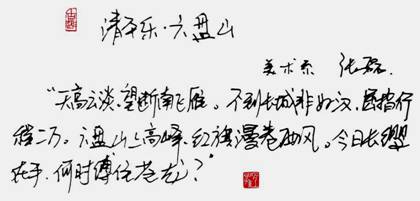 清平乐·六盘山
美术系 张磊
“天高云淡，望断南飞雁。不到长城非好汉，屈指行
程二万。六盘山上高峰，红旗漫卷西风。今日长缨
在手，何时缚住苍龙？”